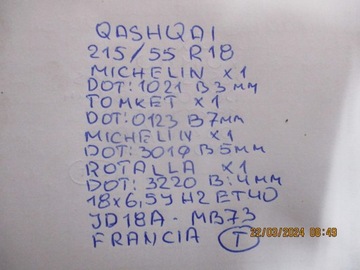 QASHQAI
215/55 R18
MICHELIN X1
DOT:1021 B3мм
TOMKET X1
DOT:0123 B7мм
MICHELIN X1
DOT:3019 B5мм
ROTALLA X1
DOT:3220 B:4мм
18x6,5J H2 ET40
JD18A-MB73
FRANCIA T
22/03/2024 08:49